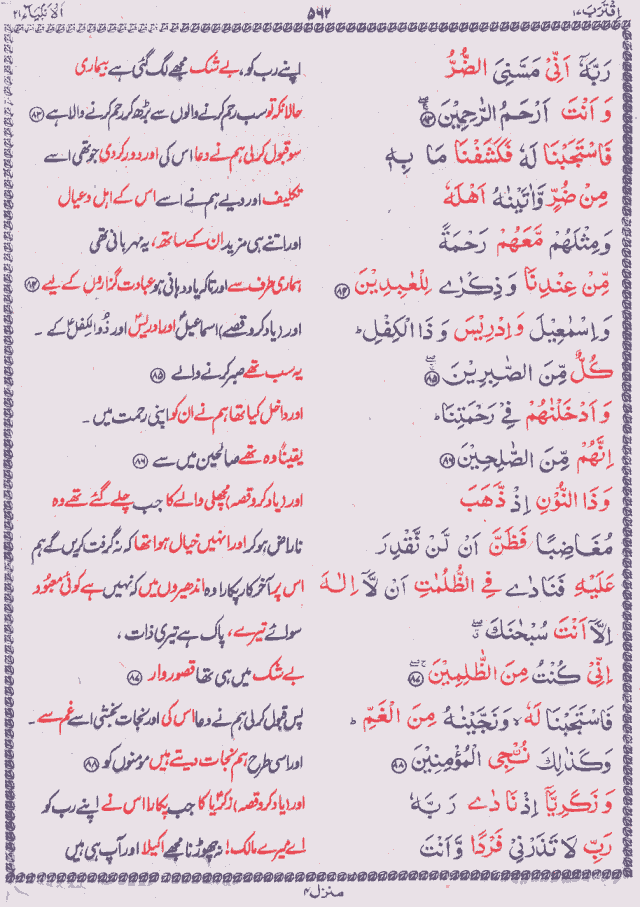 اِقْتَرَبَ ١٧ ٥٦٢ اَلْاَنْبِيَآء ٢١
رَبَّهٗٓ اَنِّىْ مَسَّنِىَ الضُّرُّ اپنے رب کو، بے شک مجھے لگ گئی ہے بیماری
وَ اَنْتَ اَرْحَمُ الرّٰحِمِيْنَ ﴿٨٣﴾ حالانکہ تو سب رحم کرنے والوں سے بڑھ کر رحم کرنے والا ہے ﴿٨٣﴾
فَاسْتَجَبْنَا لَهٗ فَكَشَفْنَا مَا بِهٖ سو قبول کرلی ہم نے دعا اس کی اور دور کر دی جو تھی اسے
مِنْ ضُرٍّ وَّاٰتَيْنٰهُ اَهْلَهٗ تکلیف اور دیے ہم نے اسے اس کے اہل و عیال
وَمِثْلَهُمْ مَّعَهُمْ رَحْمَةً اور اتنے ہی مزید ان کے ساتھ، یہ مہربانی تھی
مِّنْ عِنْدِنَا وَ ذِكْرٰى لِلْعٰبِدِيْنَ ﴿٨٤﴾ ہماری طرف سے اور تاکہ یاد دہانی ہو عبادت گزاروں کے لیے ﴿٨٤﴾
وَ اِسْمٰعِيْلَ وَ اِدْرِيْسَ وَ ذَا الْكِفْلِ ؕ اور (یاد کرو قصے) اسماعیلؑ اور ادریسؑ اور ذُوالکِفلؑ کے ۔
كُلٌّ مِّنَ الصّٰبِرِيْنَ ﴿٨٥﴾ یہ سب تھے صبر کرنے والے ﴿٨٥﴾
وَ اَدْخَلْنٰهُمْ فِىْ رَحْمَتِنَا ؕ اور داخل کیا تھا ہم نے ان کو اپنی رحمت میں ۔
اِنَّهُمْ مِّنَ الصّٰلِحِيْنَ ﴿٨٦﴾ یقیناً وہ تھے صالحین میں سے ﴿٨٦﴾
وَ ذَا النُّوْنِ اِذْ ذَّهَبَ اور (یاد کرو قصہ) مچھلی والے کا جب چلے گئے تھے وہ
مُغَاضِبًا فَظَنَّ اَنْ لَّنْ نَّقْدِرَ ناراض ہوکر اور انہیں خیال ہوا تھا کہ نہ گرفت کریں گے ہم
عَلَيْهِ فَنَادٰى فِى الظُّلُمٰتِ اَنْ لَّآ اِلٰهَ اس پر آخر کار پکارا وہ اندھیروں میں کہ نہیں ہے کوئی معبُود
اِلَّآ اَنْتَ سُبْحٰنَكَ سوائے تیرے، پاک ہے تیری ذات ،
اِنِّىْ كُنْتُ مِنَ الظّٰلِمِيْنَ ﴿٨٧﴾ بے شک میں ہی تھا قصور وار ﴿٨٧﴾
فَاسْتَجَبْنَا لَهٗ ۙ وَ نَجَّيْنٰهُ مِنَ الْغَمِّ ؕ پس قبول کرلی ہم نے دعا اس کی اور نجات بخشی اسے غم سے ۔
وَ كَذٰلِكَ نُنْجِى الْمُؤْمِنِيْنَ ﴿٨٨﴾ اور اسی طرح ہم نجات دیتے ہیں مومنوں کو ﴿٨٨﴾
وَ زَكَرِيَّآ اِذْ نَادٰى رَبَّهٗ اور (یاد کرو قصہ) زکریاؑ کا جب پکارا اس نے اپنے رب کو
رَبِّ لَا تَذَرْنِىْ فَرْدًا وَّ اَنْتَ اے میرے مالک! نہ چھوڑنا مجھے اکیلا اور آپ ہی ہیں
منزل ٤